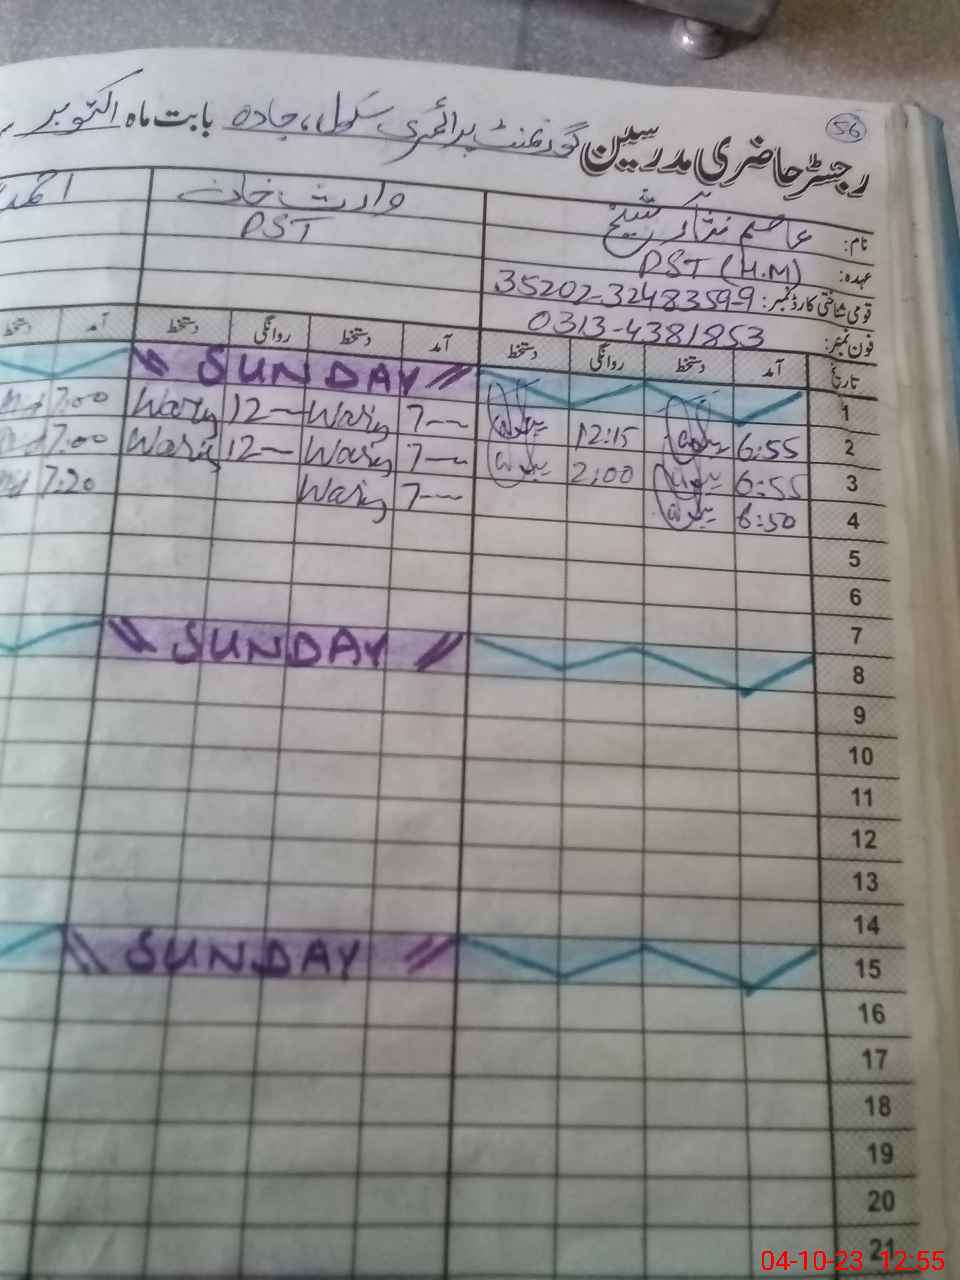 56
رجسٹر حاضری مدرسین گورنمنٹ پرائمری سکول، جادہ بابت ماہ اکتوبر
نام: عاصم شیخ وارث خان احمد
عہدہ: PST (H.M) PST
قومی شناختی کارڈ نمبر: 35202-3248359-9
فون نمبر: 0313-4381853
تاریخ آمد دستخط روانگی دستخط آمد دستخط روانگی دستخط آمد دستخط
1 \\ SUNDAY //
2 6:55 12:15 7— Waris 12— Waris 7:00
3 6:55 2:00 7— Waris 12— Waris 7:00
4 6:50 7— Waris 7:20
5
6
7
8 \\ SUNDAY //
9
10
11
12
13
14
15 \\ SUNDAY //
16
17
18
19
20
21
04-10-23 12:55